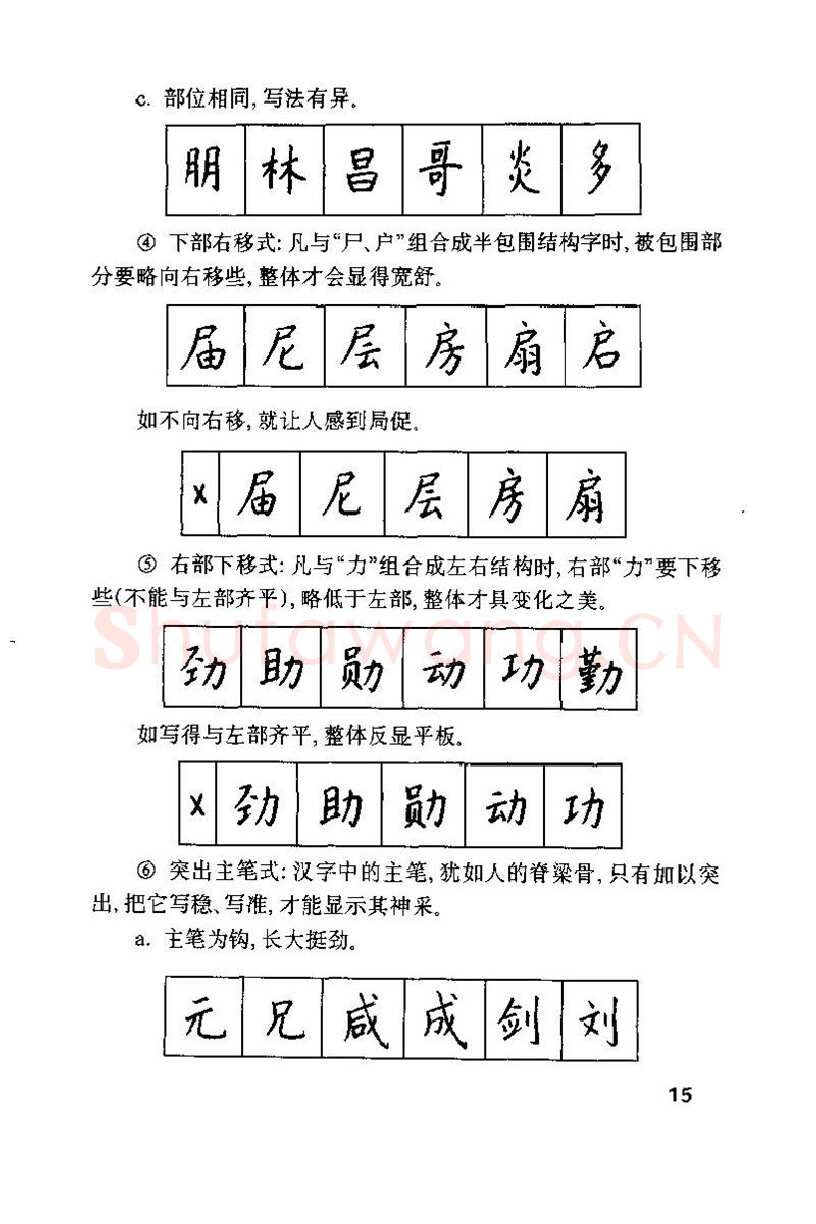 c. 部位相同,写法有异。
朋 林 昌 哥 炎 多
④ 下部右移式:凡与“尸、户”组合成半包围结构字时,被包围部
分要略向右移些,整体才会显得宽舒。
届 尼 层 房 扇 启
如不向右移,就让人感到局促。
x 届 尼 层 房 扇
⑤ 右部下移式:凡与“力”组合成左右结构时,右部“力”要下移
些(不能与左部齐平),略低于左部,整体才具变化之美。
Shufawang.CN
劲 助 勋 动 功 勤
如写得与左部齐平,整体反显平板。
x 劲 助 勋 动 功
⑥ 突出主笔式:汉字中的主笔,犹如人的脊梁骨,只有加以突
出,把它写稳、写准,才能显示其神采。
a. 主笔为钩,长大挺劲。
元 兄 咸 成 剑 刘
15